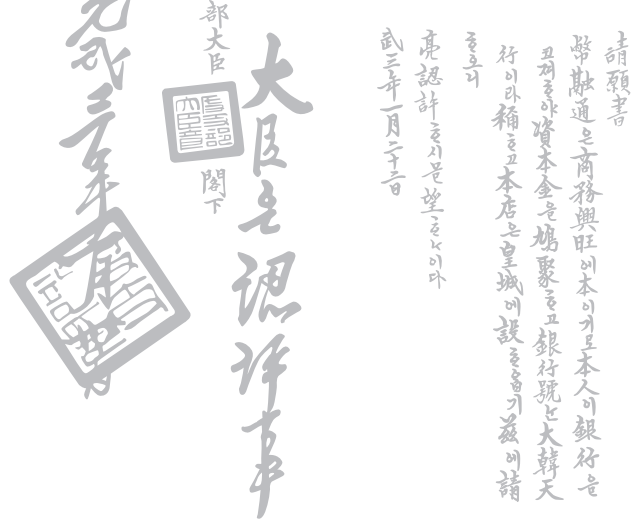 請願書
幣融通은商務興旺에本이기로本人이銀行을
코져ᄒᆞ야資本金을鳩聚ᄒᆞ고銀行號ᄂᆞᆫ大韓天
行이라稱ᄒᆞ고本店은皇城에設ᄒᆞ옵기玆에請
ᄒᆞ오니
亮認許ᄒᆞ시믈望ᄒᆞᄂᆞ이다
武三年一月二十二日
大臣은認許事
部大臣 閣下
光武三年一月卅日